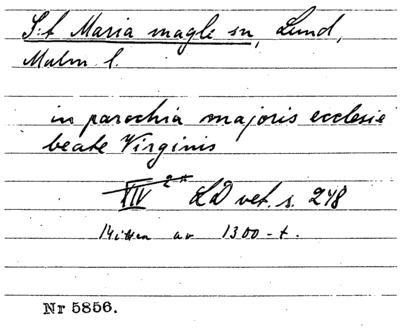 S:t Maria magle sn, Lund,
Malm l.
in parochia majoris ecclesie
beate Virginis
XIV 2* LD vet. s. 248
Mitten av 1300-t.
Nr 5856.